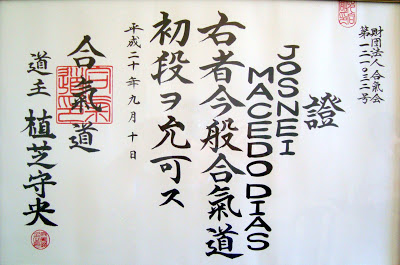 財団法人 合氣会
第一二一〇三二号
證
JOSNEI
MACEDO DIAS
右者今般合氣道
初段ヲ允可ス
平成二十年九月十日
合氣道
道主 植芝守央